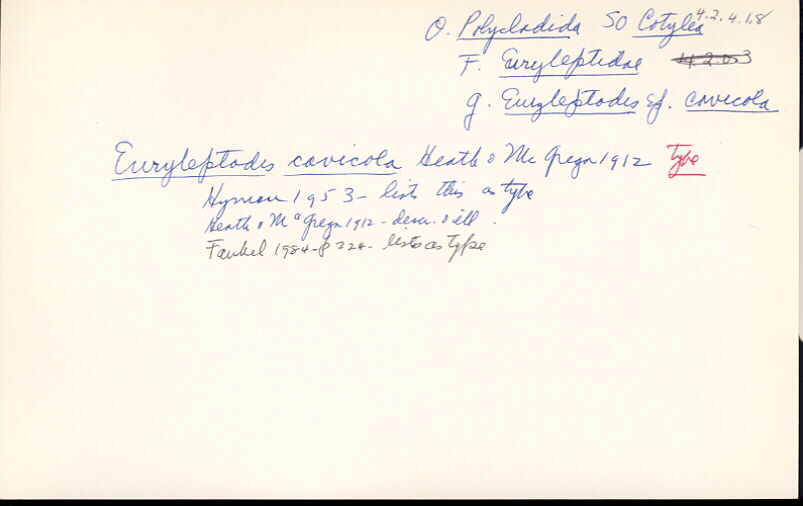 O. Polycladida SO Cotylea 4.2.4.1.8
F. Euryleptidae 4.2.053
g. Euryleptodes sf. cavicola
Euryleptodes cavicola Heath & McGregor 1912 type
Hyman 1953 - lists this as type
Heath & McGregor 1912 - descr. & ill.
Faubel 1984 - p 224 - lists as type